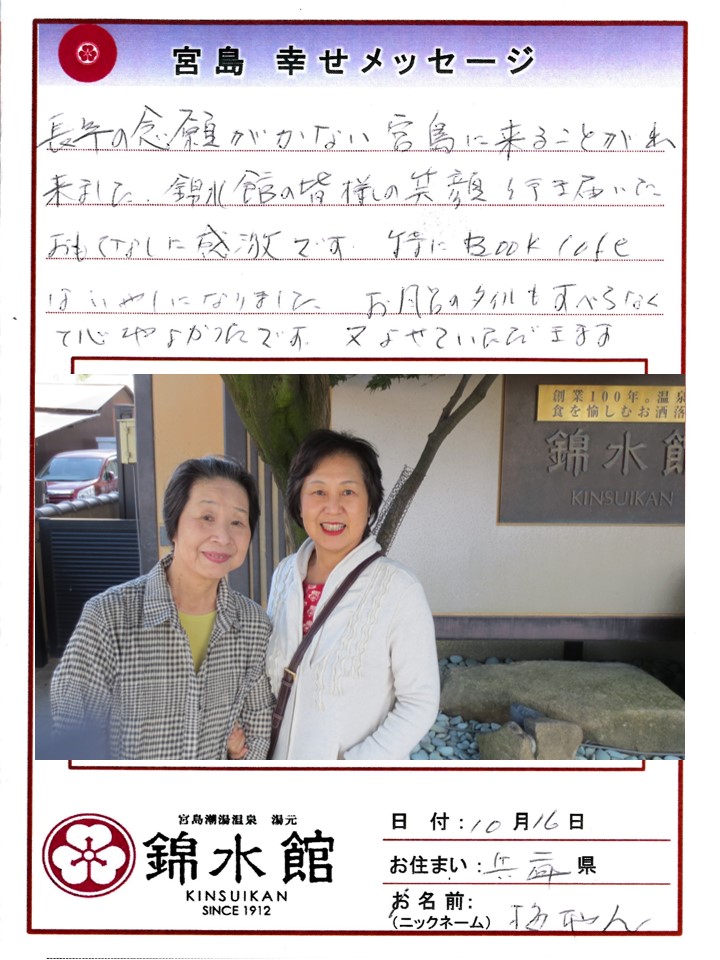 宮島 幸せメッセージ
長年の念願がかない宮島に来ることが出
来ました、錦水館の皆様の笑顔 行き届いた
おもてなしに感激です。特に Book Cafe
はいやしになりました。お風呂のタイルもすべらなく
て心地よかったです。又よせていただきます
創業100年。温泉
食を愉しむお洒落
錦水館
KINSUIKAN
宮島潮湯温泉 湯元
錦水館
KINSUIKAN
SINCE 1912
日 付：10月16日
お住まい：兵庫県
お名前：
（ニックネーム）